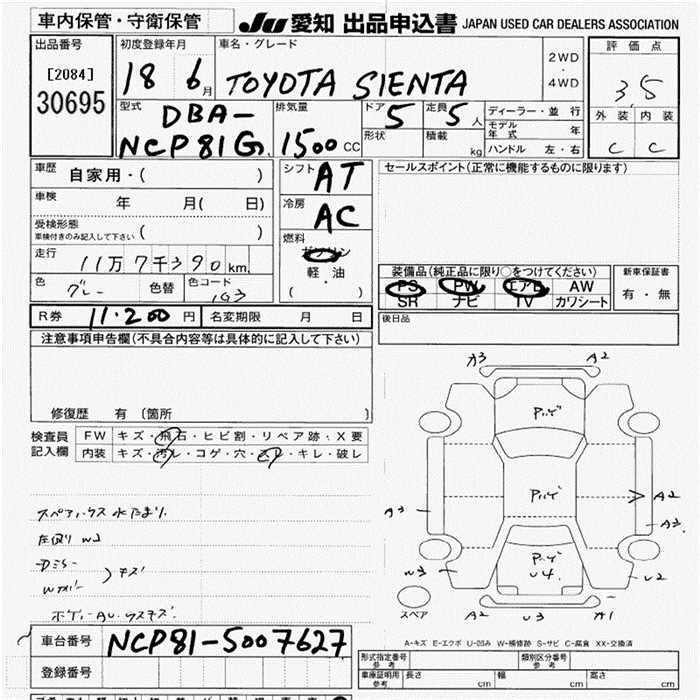 車内保管・守衛保管 JU 愛知 出品申込書 JAPAN USED CAR DEALERS ASSOCIATION
出品番号 初度登録年月 車名・グレード 評価点
[2084] 18 6月 TOYOTA SIENTA 2WD・4WD 3,5
30695
型式 DBA- 排気量 ドア 5 定員 5人 ディーラー・並行 外装 内装
NCP81G 1500CC 形状 積載 kg モデル年式 年 C C
ハンドル 左・右
車歴 自家用・( ) シフト AT セールスポイント(正常に機能するものに限ります)
車検 年 月( 日) 冷房 AC
受検形態 ( )
車検付きのみ記入して下さい
燃料 ガソリン
走行 11万7千390km 軽・油
装備品(純正品に限り○をつけてください) 新車保証書
色 グレー 色替 色コード 1G3 ( )
PS PW エアB AW 有・無
SR ナビ TV カワシート
R券 11.200円 名変期限 月 日 後日品
注意事項申告欄(不具合内容等は具体的に記入して下さい)
修復歴 有 〔箇所 〕
検査員 FW キズ・飛石・ヒビ割・リペア跡・X要
記入欄 内装 キズ・汚レ・コゲ・穴・スレ・キレ・破レ
A3 A2
ハパゲ
A3 A2
A3
W3 U4. U2
スペア A2 U3 A1
スペアハウス 水たまり
キズ
A-キズ E-エクボ U-凹み W-補修跡 S-サビ C-腐食 XX-交換済
車台番号 NCP81-5007627
登録番号
形式指定番号 参考 類別区分番号 参考
車庫証明用 参考 長さ cm 幅 cm 高さ cm